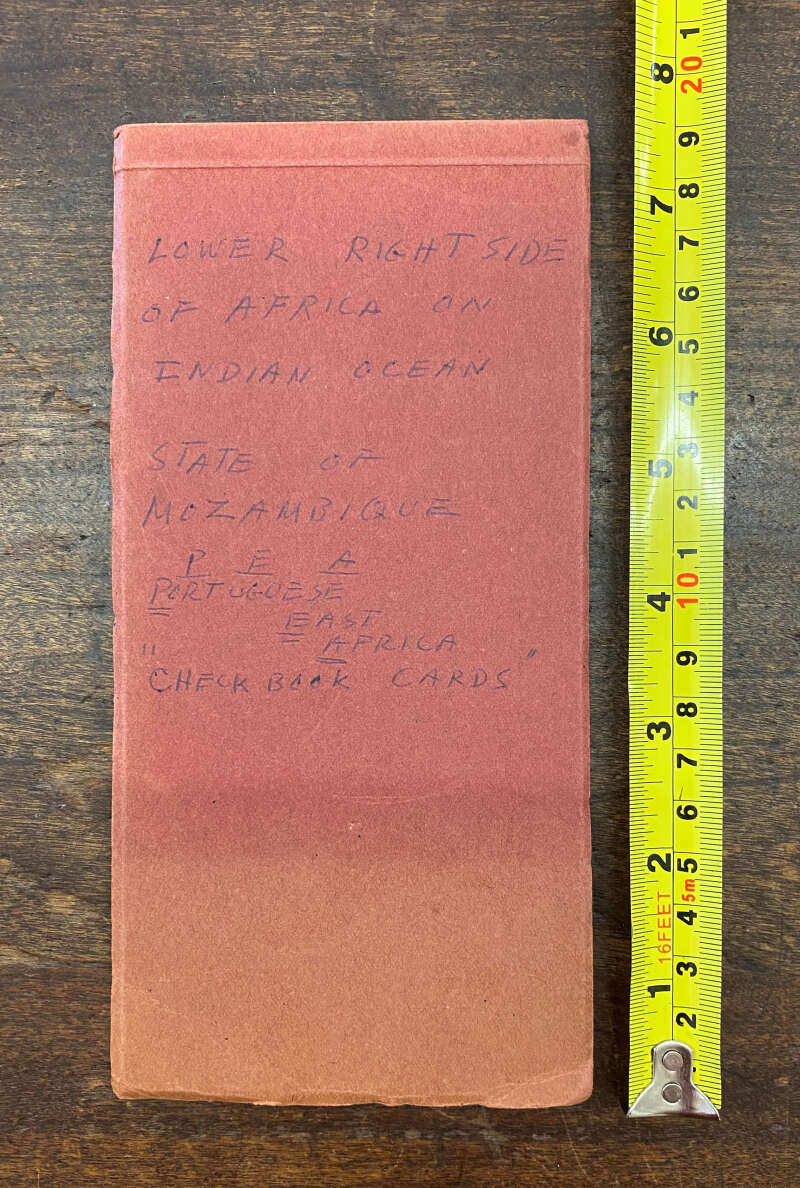 LOWER RIGHT SIDE
OF AFRICA ON
INDIAN OCEAN
STATE OF
MOZAMBIQUE
P E A
PORTUGUESE
EAST
" AFRICA "
CHECK BOOK CARDS
8
7
6
5
4
3
2
1
16FEET
1
20
9
8
7
6
5
4
3
2
1
10
9
8
7
6
5
5m
4
3
2